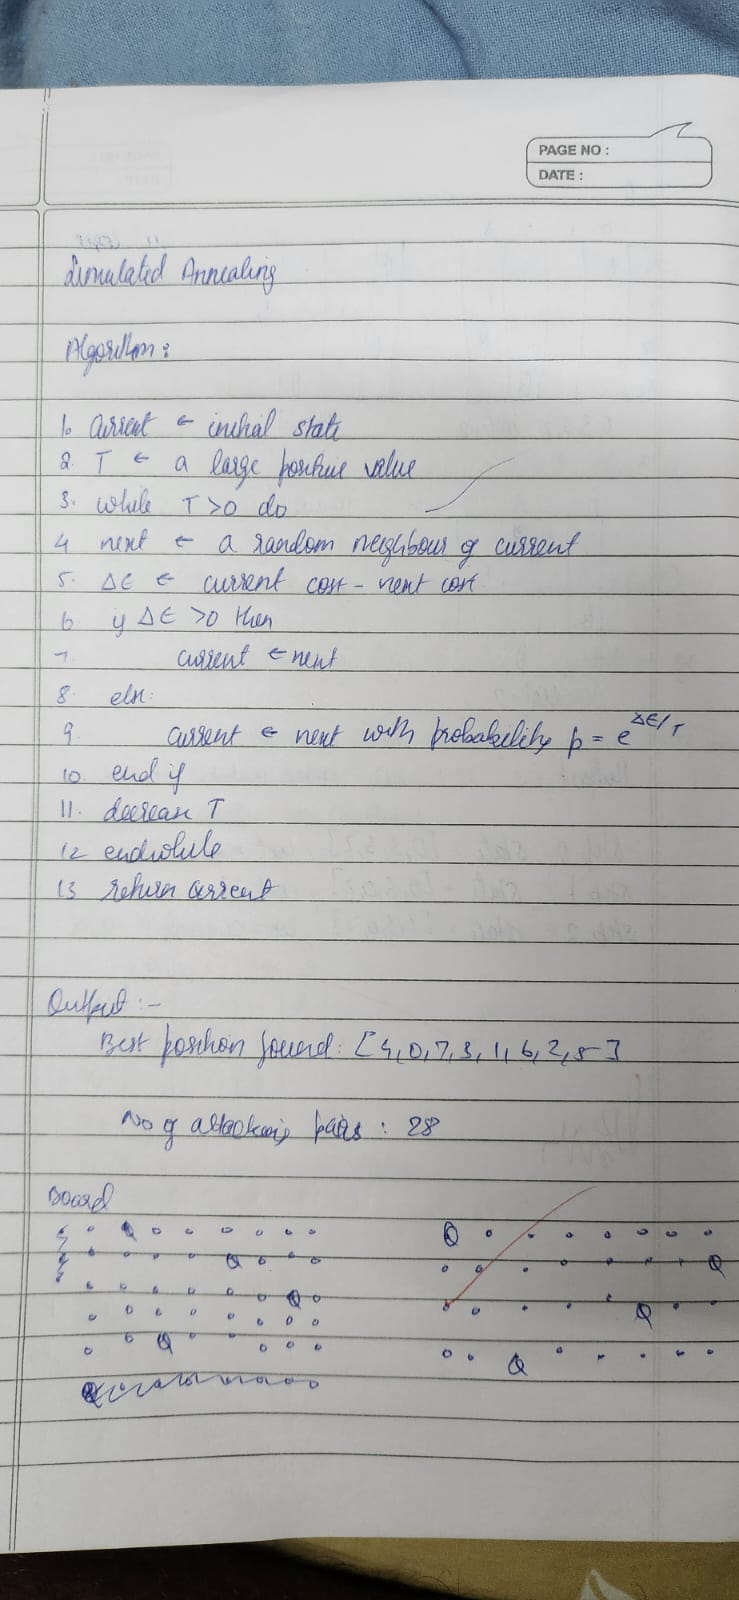 PAGE NO :
DATE :
Simulated Annealing
Algorithm:
1. Current ← initial state
2. T ← a large positive value
3. while T>0 do
4 next ← a random neighbour of current
5. ΔE ← current cost - next cost
6 if ΔE >0 then
7 current ← next
8 else:
9 current ← next with probability p = e^ΔE/T
10. end if
11. decrease T
12 endwhile
13 return current
Output :-
Best position found: [4,0,7,3,1,6,2,5]
No of attacking pairs : 28
Board